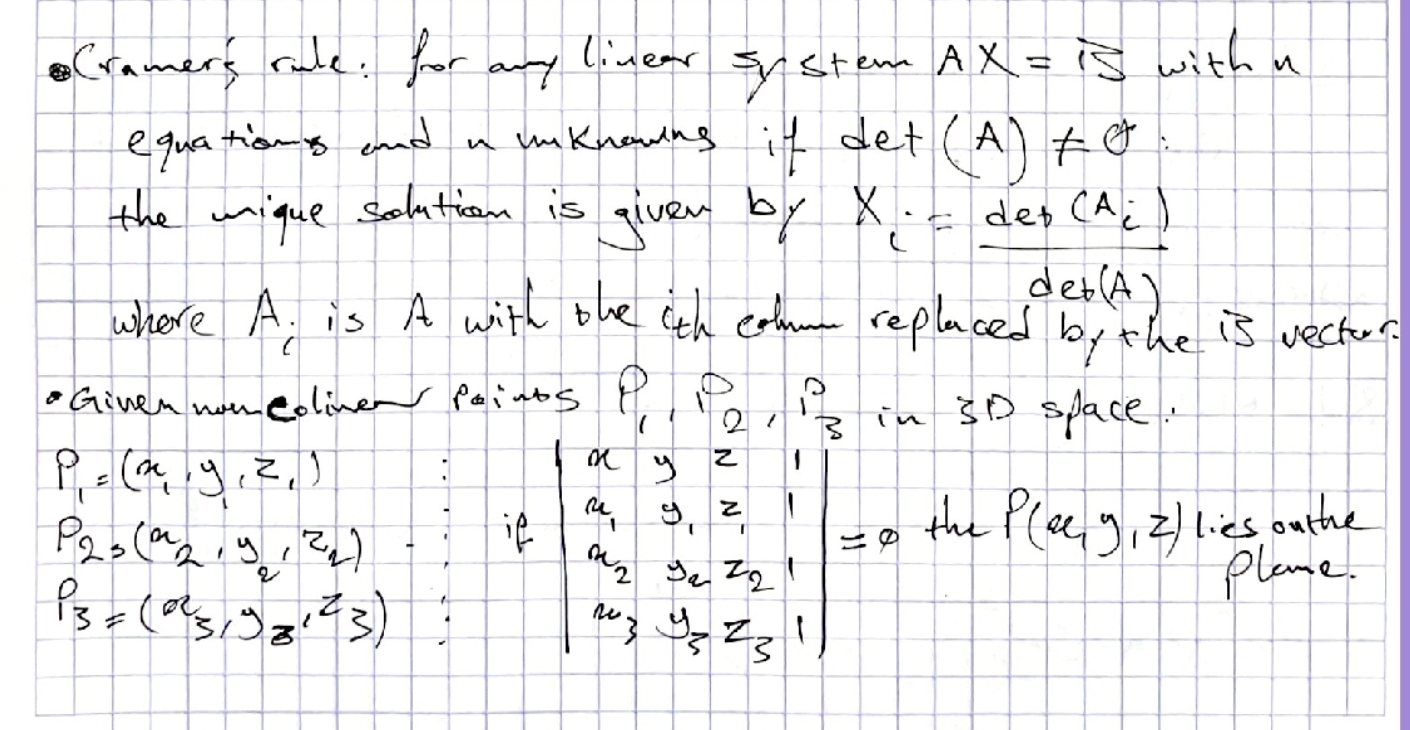 • Cramer's rule: for any linear system AX = B with n
equations and n unknowns if det(A) ≠ 0 :
the unique solution is given by Xi = det(Ai) / det(A)
where Ai is A with the ith column replaced by the B vector.
• Given non colinear points P1, P2, P3 in 3D space:
P1 = (x1, y1, z1) : | x y z 1 |
P2 = (x2, y2, z2) : if | x1 y1 z1 1 | = 0 the P(x, y, z) lies on the
| x2 y2 z2 1 | plane.
P3 = (x3, y3, z3) : | x3 y3 z3 1 |